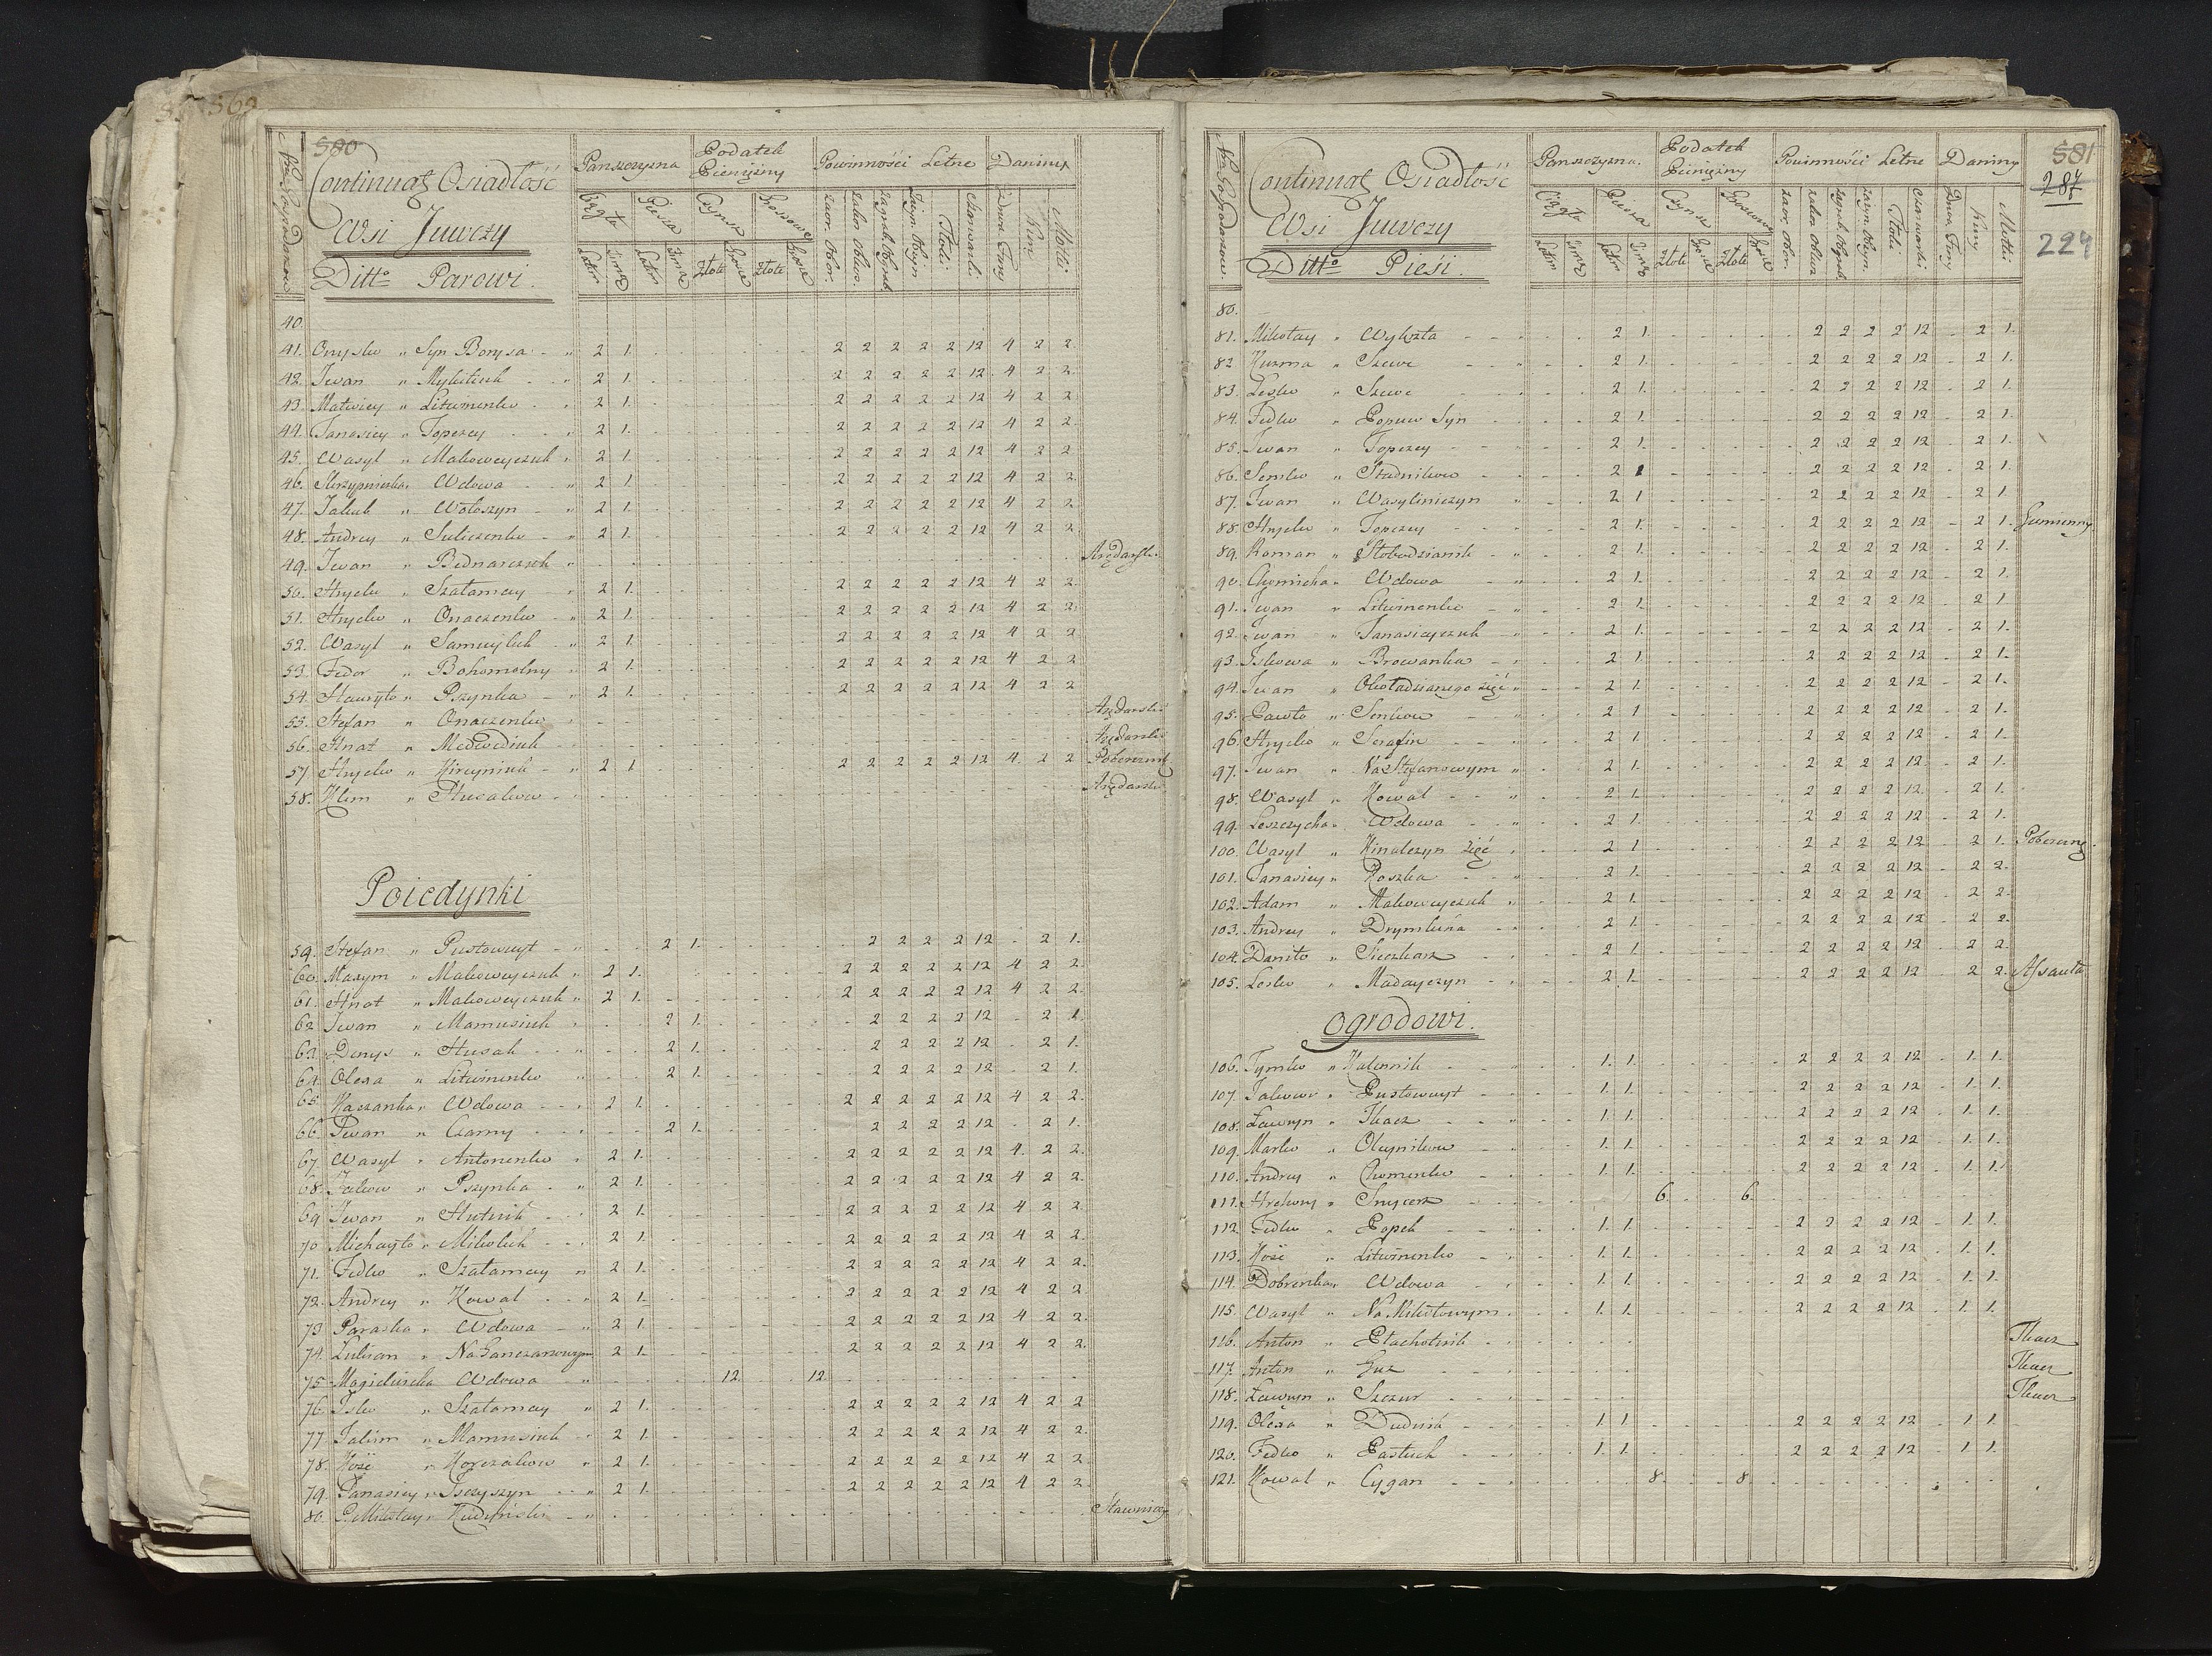 580
Continuat Osiadłość
Wsi Juwczy
Ditto Parowi.
Panszczyzna
Podatek Pieniężny
Powinności Letne
Daniny
Ciągła Piesza Czynsz
Latm Zimą Latm Zimą Złote Grosze Złote Grosze
40.
41. Onysko " Syn Borysa " 2 1. 2 2 2 2 2 12 4 2 2
42. Iwan " Mykituk " 2 1. 2 2 2 2 2 12 4 2 2
43. Matwiey " Litwinenko " 2 1. 2 2 2 2 2 12 4 2 2
44. Tanasiey " Topczey " 2 1. 2 2 2 2 2 12 4 2 2
45. Wasyl " Makoweyczuk " 2 1. 2 2 2 2 2 12 4 2 2
46. Skrzypniczka " Wdowa " 2 1. 2 2 2 2 2 12 4 2 2
47. Jakub " Wołoszyn " 2 1. 2 2 2 2 2 12 4 2 2
48. Andrey " Suliczenko " 2 1. 2 2 2 2 2 12 4 2 2
49. Iwan " Bednarczuk " Arędarski
50. Hryćko " Szałamay " 2 1. 2 2 2 2 2 12 4 2 2
51. Hryćko " Onaczenko " 2 1. 2 2 2 2 2 12 4 2 2
52. Wasyl " Samuyluk " 2 1. 2 2 2 2 2 12 4 2 2
53. Fedor " Bohomolny " 2 1. 2 2 2 2 2 12 4 2 2
54. Hawryło " Pszynka " 2 1. 2 2 2 2 2 12 4 2 2
55. Stefan " Onaczenko " Arędarski
56. Hnat " Medwediuk " Arędarski
57 Hryćko " Kireyniuk " 2 1. 2 2 2 2 2 12 4 2 2 Pobereżnik
58. Klim " Husakow " Arędarski
Poiedynki
59. Stefan " Pustowuyt " 2 1. 2 2 2 2 12 2 1.
60. Maxym " Makoweyczuk " 2 1. 2 2 2 2 2 12 4 2 2
61. Hnat " Makoweyczuk " 2 1. 2 2 2 2 2 12 4 2 2
62 Iwan " Mamusiuk " 2 1. 2 2 2 2 12 2 1.
63. Denys " Husak " 2 1. 2 2 2 2 12 2 1.
64. Olexa " Litwinenko " 2 1. 2 2 2 2 12 2 1.
65 Kaczanka " Wdowa " 2 1. 2 2 2 2 2 12 4 2 2.
66. Iwan " Czarny " 2 1. 2 2 2 2 12 2 1.
67. Wasyl " Antonenko " 2 1. 2 2 2 2 2 12 4. 2 2.
68. Jakow " Pszynka " 2 1. 2 2 2 2 2 12 4 2 2.
69 Iwan " Hutnik " 2 1. 2 2 2 2 2 12 4 2 2.
70 Michayło " Mikoluk " 2 1. 2 2 2 2 2 12 4 2 2.
71. Fedko " Szałamay " 2 1. 2 2 2 2 2 12 4 2 2.
72. Andrey " Kowal " 2 1. 2 2 2 2 2 12 4 2 2
73 Paraska " Wdowa " 2 1. 2 2 2 2 2 12 4 2 2.
74. Lukian " Na Ganczarowym 2 1. 2 2 2 2 2 12 4 2 2.
75 Wdowa " 12. 12.
76. Isko " Szałamay " 2 1. 2 2 2 2 2 12 4 2 2
77 Jakim " Mamusiuk " 2 1. 2 2 2 2 2 12 4 2 2.
78. Kość " Korczakow " 2 1. 2 2 2 2 2 12 4 2 2
79. Tanasiey " 2 1. 2 2 2 2 2 12 4 2 2
80. P. Mikołay " "
581
287
224
Continuat Osiadłość
Wsi Juwczy
Ditto Pieśi.
Panszczyzna.
Podatek Pieniężny
Powinności Letne
Daniny
80.
81. Mikołay " 2 1. 2 2 2 2 12 2 1.
82 Kuzma " Szewc 2 1. 2 2 2 2 12 2 1.
83. Lesko " Szewc 2 1. 2 2 2 2 12 2 1.
84. Fedko " Popuw Syn 2 1. 2 2 2 2 12 2 1.
85. Iwan " Topczey 2 1. 2 2 2 2 12 2 1.
86. Senko " Stadnikow 2 1 2 2 2 2 12 2 1.
87. Iwan " Wasyliniczyn 2 1 2 2 2 2 12 2 1.
88. Hryćko " Topczey 2 1. 2 2 2 2 12 2 1. Gumienny
89. Roman " Słobodzianik 2 1. 2 2 2 2 12 2 1.
90. Wdowa 2 1. 2 2 2 2 12 2 1.
91. Iwan " Litwinenko 2 1. 2 2 2 2 12 2 1.
92. Iwan " Tanasieyczuk 2 1. 2 2 2 2 12 2 1.
93. Iskowa " Browarka 2 1. 2 2 2 2 12 2 1.
94. Iwan " Zięć 2 1. 2 2 2 2 12 2 1.
95. Pawło " Senkow 2 1 2 2 2 2 12 2 1.
96. Hryćko " Serafin 2 1. 2 2 2 2 12 2 1.
97. Iwan " Na Stefanowym 2 1. 2 2 2 2 12 2 1.
98. Wasyl " Kowal 2 1. 2 2 2 2 12 2 1.
99. Leszczycha " Wdowa 2 1. 2 2 2 2 12 2 1.
100. Wasyl " Zięć 2 1. 2 2 2 2 12 2 1. Pobereżny
101. Tanasiey " Koszka 2 1. 2 2 2 2 12 2 2.
102. Adam " Makoweyczuk 2 1. 2 2 2 2 12 2 2.
103. Andrey " 2 1. 2 2 2 2 12 2 2.
104. Daniło " Sieczkarz 2 1. 2 2 2 2 12 2 2.
105. Lesko " Madayczyn 2 1. 2 2 2 2 12 2 2. Assauła
Ogrodowi.
106. Tymko " Kalennik 1. 1. 2 2 2 2 12 1. 1.
107. Jakow " Pustowuyt 1. 1. 2 2 2 2 12 1. 1.
108. Ławryn " Tkacz 1. 1. 2 2 2 2 12 1. 1.
109. Marko " Oleynikow 1. 1. 2 2 2 2 12 1. 1.
110. Andrey " Chomenko 1. 1. 2 2 2 2 12 1. 1.
111. Hrehory " Snycerz 6. 6.
112. Fedko " Popek 1. 1. 2 2 2 2 12 1. 1.
113. Kość " Litwinenko 1. 1. 2 2 2 2 12 1. 1.
114. Dobrenka " Wdowa 1. 1. 2 2 2 2 12 1. 1.
115. Wasyl " Na Mikitowym 1. 1. 2 2 2 2 12 1. 1.
116. Anton " Płachotnik Tkacz
117. Anton " Guz Tkacz
118. Ławryn " Szczur Tkacz
119. Olexa " Dudnik 1. 1 2 2 2 2 12 1 1.
120. Fedko " Pastuch 1. 1. 2 2 2 2 12 1 1.
121. Kowal " Cygan 8. 8.